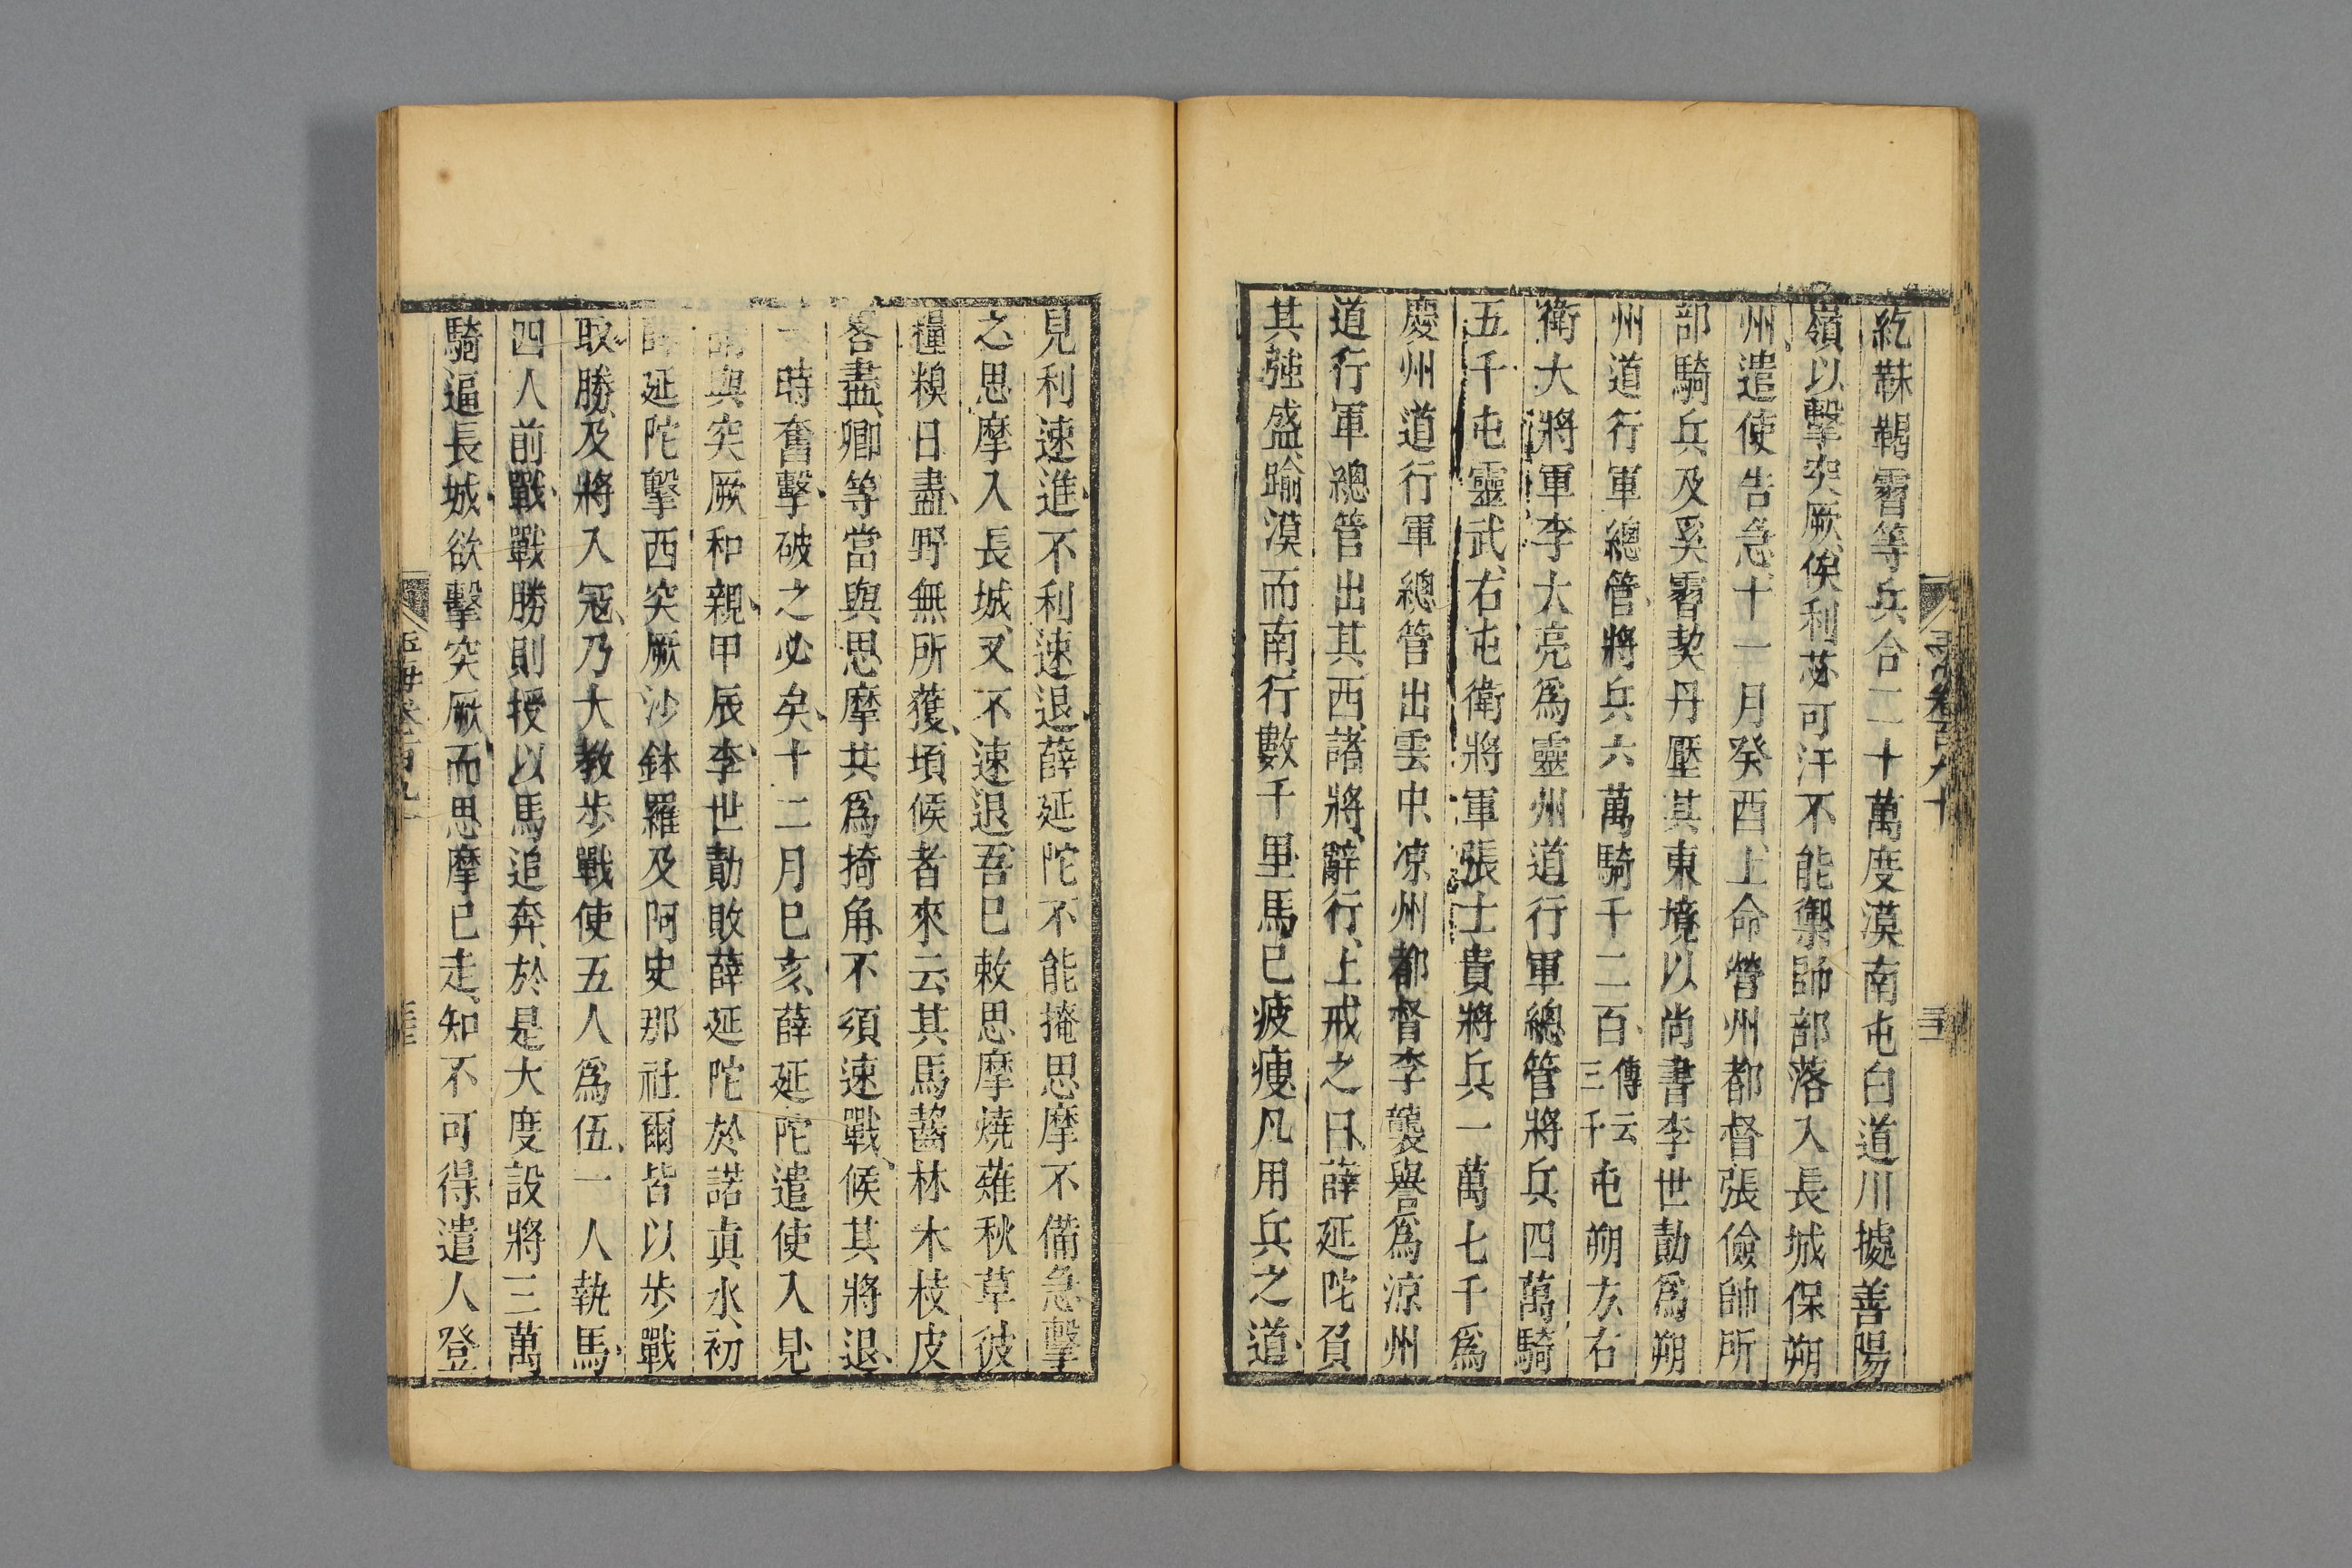 紇靺鞨霫等兵合二十萬度漠南屯白道川據善陽
嶺以擊突厥俟利苾可汗不能禦帥部落入長城保朔
州遣使告急十一月癸酉上命營州都督張儉帥所
部騎兵及奚霫契丹壓其東境以尚書李世勣爲朔
州道行軍總管將兵六萬騎千二百傳云三千屯朔方右
衛大將軍李大亮爲靈州道行軍總管將兵四萬騎
五千屯靈武右屯衛將軍張士貴將兵一萬七千爲
慶州道行軍總管出雲中凉州都督李襲譽爲涼州
道行軍總管出其西諸將辭行上戒之曰薛延陀負
其強盛踰漠而南行數千里馬已疲瘦凡用兵之道
見利速進不利速退薛延陀不能掩思摩不備急擊
之思摩入長城又不速退吾已敕思摩燒薙秋草彼
糧糗日盡野無所獲頃候者來云其馬齧林木枝皮
畧盡卿等當與思摩共爲掎角不須速戰候其將退
一時奮擊破之必矣十二月巳亥薛延陀遣使入見
請與突厥和親甲辰李世勣敗薛延陀於諾眞水初
薛延陀擊西突厥沙鉢羅及阿史那社爾皆以步戰
取勝及將入寇乃大教步戰使五人爲伍一人執馬
四人前戰戰勝則授以馬追奔於是大度設將三萬
騎逼長城欲擊突厥而思摩已走知不可得遣人登